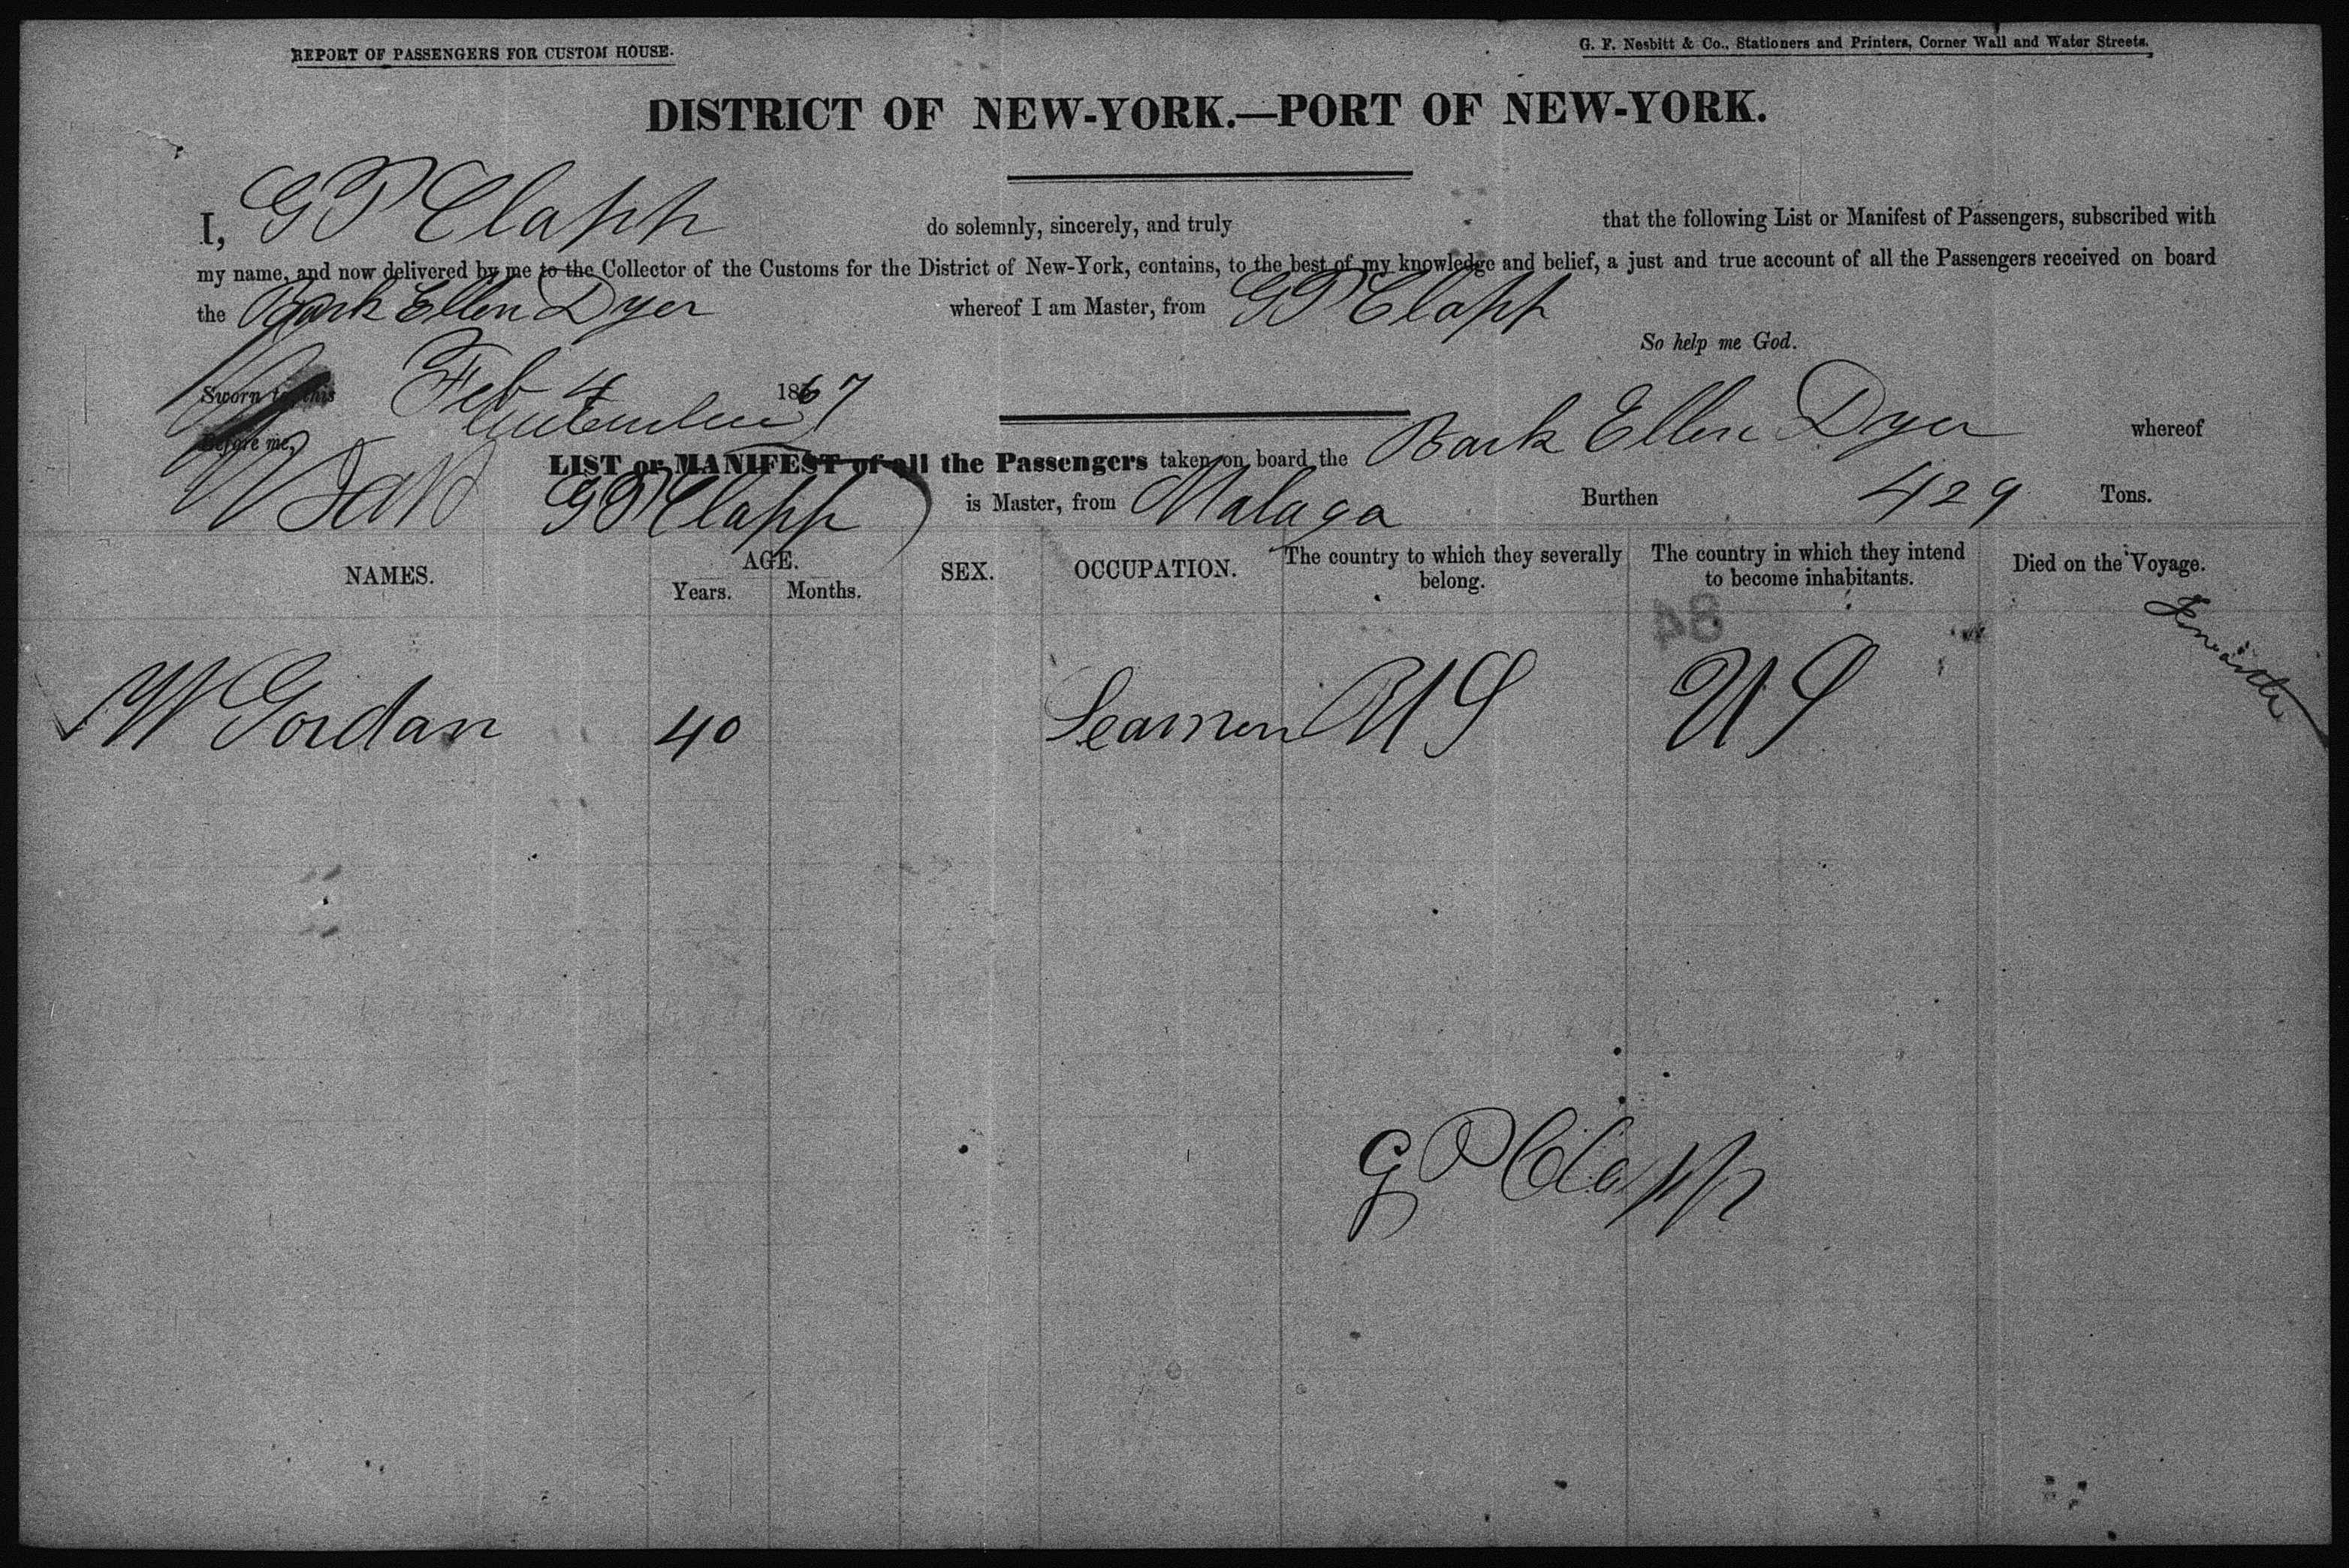 REPORT OF PASSENGERS FOR CUSTOM HOUSE.
G. F. Nesbitt & Co., Stationers and Printers, Corner Wall and Water Streets.
DISTRICT OF NEW-YORK.—PORT OF NEW-YORK.
I, G P Clapp do solemnly, sincerely, and truly that the following List or Manifest of Passengers, subscribed with
my name, and now delivered by me to the Collector of the Customs for the District of New-York, contains, to the best of my knowledge and belief, a just and true account of all the Passengers received on board
the Bark Ellen Dyer whereof I am Master, from G P Clapp
So help me God.
Sworn to, this Feb 4 1867
Before me,
LIST or MANIFEST of all the Passengers taken on board the Bark Ellen Dyer whereof
G P Clapp is Master, from Malaga Burthen 429 Tons.
NAMES. AGE. Years. Months. SEX. OCCUPATION. The country to which they severally belong. The country in which they intend to become inhabitants. Died on the Voyage.
84
W Gordan 40 Seamen U S U S
G P Clapp